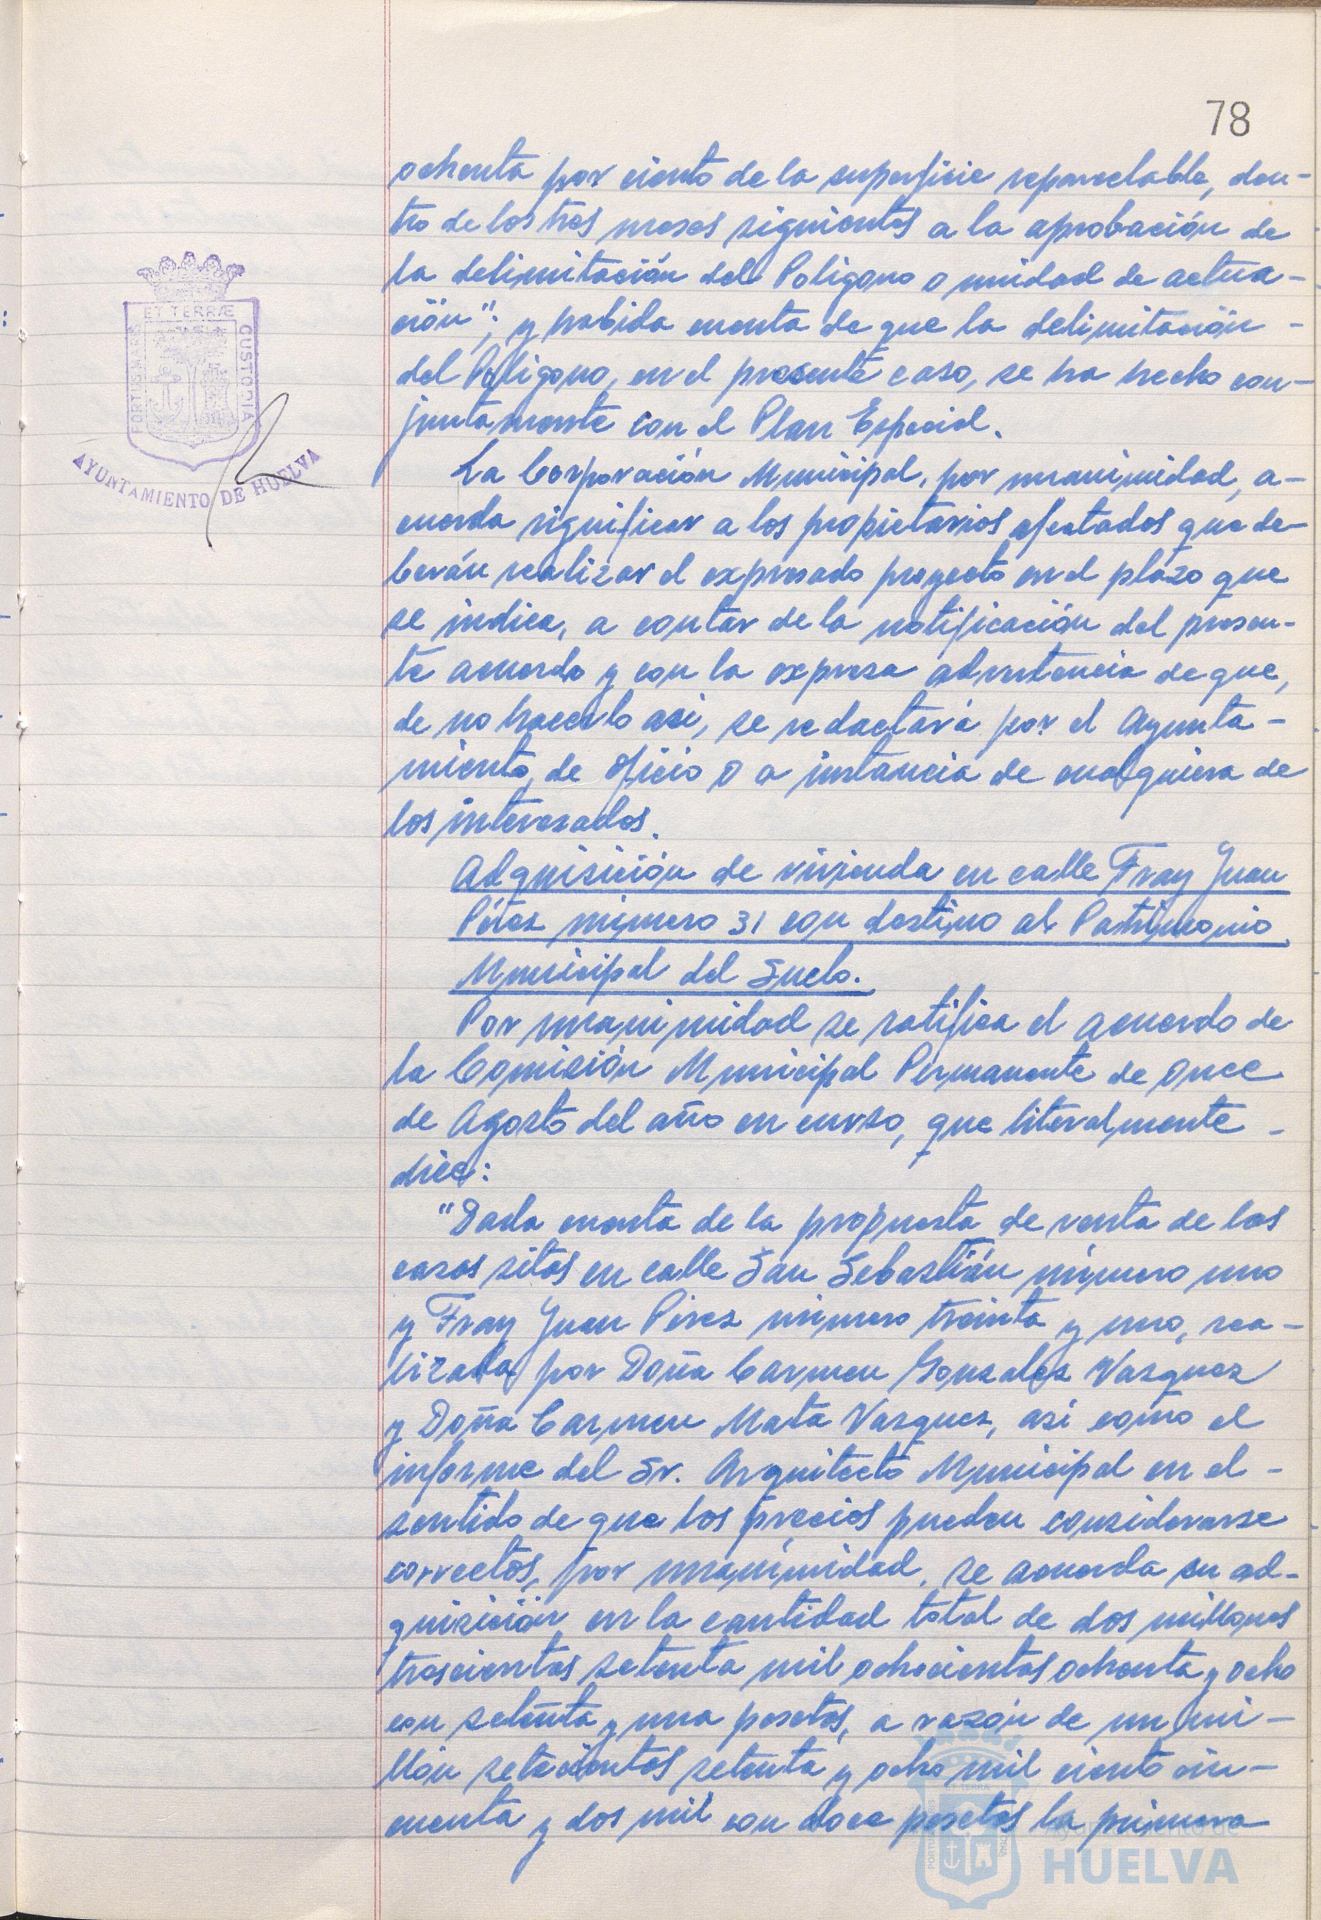 78
ochenta por ciento de la superficie reparcelable, den-
tro de los tres meses siguientes a la aprobación de
la delimitación del Poligono o unidad de actua-
ción"; y habida cuenta de que la delimitación -
del Poligono, en el presente caso, se ha hecho con-
juntamente con el Plan Especial.
La Corporación Municipal, por unanimidad, a-
cuerda significar a los propietarios afectados que de-
berán realizar el expresado proyecto en el plazo que
se indica, a contar de la notificación del presen-
te acuerdo y con la expresa advertencia de que,
de no hacerlo asi, se redactará por el Ayunta-
miento, de oficio o a instancia de cualquiera de
los interesados.
Adquisición de vivienda en calle Fray Juan
Pérez número 31 con destino al Patrimonio
Municipal del Suelo.
Por unanimidad se ratifica el acuerdo de
la Comisión Municipal Permanente de once
de Agosto del año en curso, que literalmente -
dice:
"Dada cuenta de la propuesta de venta de las
casas sitas en calle San Sebastián número uno
y Fray Juan Pérez número treinta y uno, rea-
lizada por Doña Carmen Gonzalez Vazquez
y Doña Carmen Mata Vazquez, asi como el
informe del Sr. Arquitecto Municipal en el -
sentido de que los precios pueden considerarse
correctos, por unanimidad, se acuerda su ad-
quisición en la cantidad total de dos millones
trescientas setenta mil ochocientas ochenta y ocho
con setenta y una pesetas, a razón de un mi-
llón setecientas setenta y ocho mil ciento cin-
cuenta y dos mil con doce pesetas la primera
PORTUS MARIS
ET TERRÆ
CUSTODIA
AYUNTAMIENTO DE HUELVA
Ayuntamiento de
HUELVA